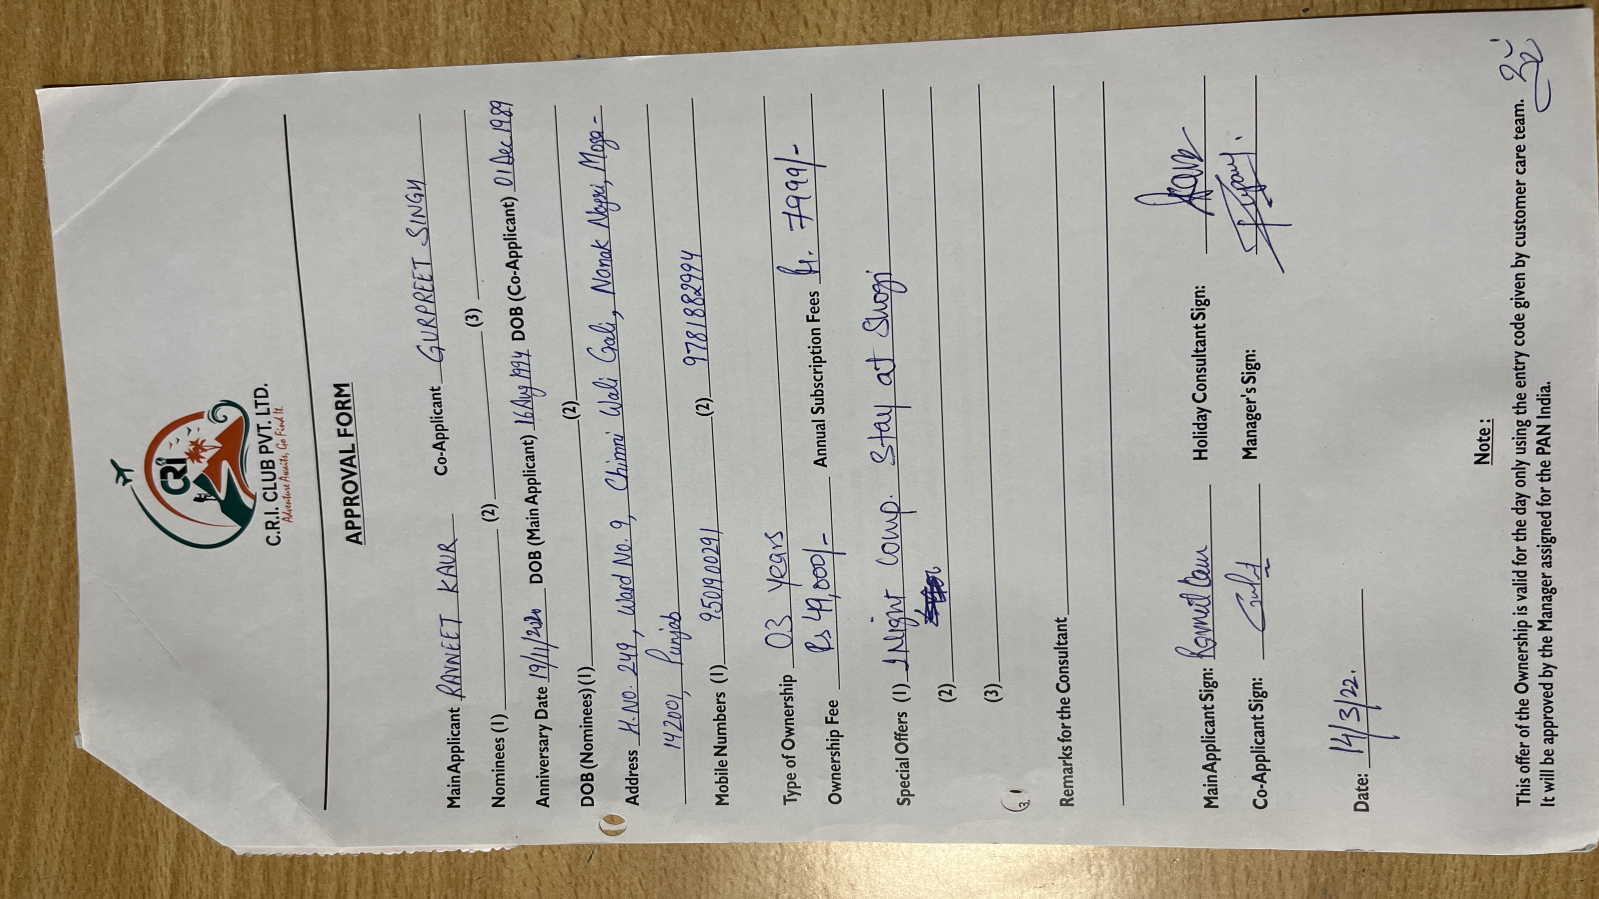 CRI
C.R.I. CLUB PVT. LTD.
Adventure Awaits, Go Find It.
APPROVAL FORM
Main Applicant RAVNEET KAUR Co-Applicant GURPREET SINGH
Nominees (1) (2) (3)
Anniversary Date 19/11/2020 DOB (Main Applicant) 16 Aug 1994 DOB (Co-Applicant) 01 Dec 1989
DOB (Nominees) (1) (2)
Address H.NO. 249, Ward No. 9, Chimni Wali Gali, Nanak Nagri, Moga -
142001, Punjab
Mobile Numbers (1) 9501900291 (2) 9781882994
Type of Ownership 03 Years
Ownership Fee Rs 49,000/- Annual Subscription Fees Rs. 7999/-
Special Offers (1) 1 Night Comp. Stay at Shogi
(2)
(3)
Remarks for the Consultant
Main Applicant Sign: Ravneet Kaur Holiday Consultant Sign:
Co-Applicant Sign: Manager's Sign:
Date: 14/3/22.
Note :
This offer of the Ownership is valid for the day only using the entry code given by customer care team.
It will be approved by the Manager assigned for the PAN India.